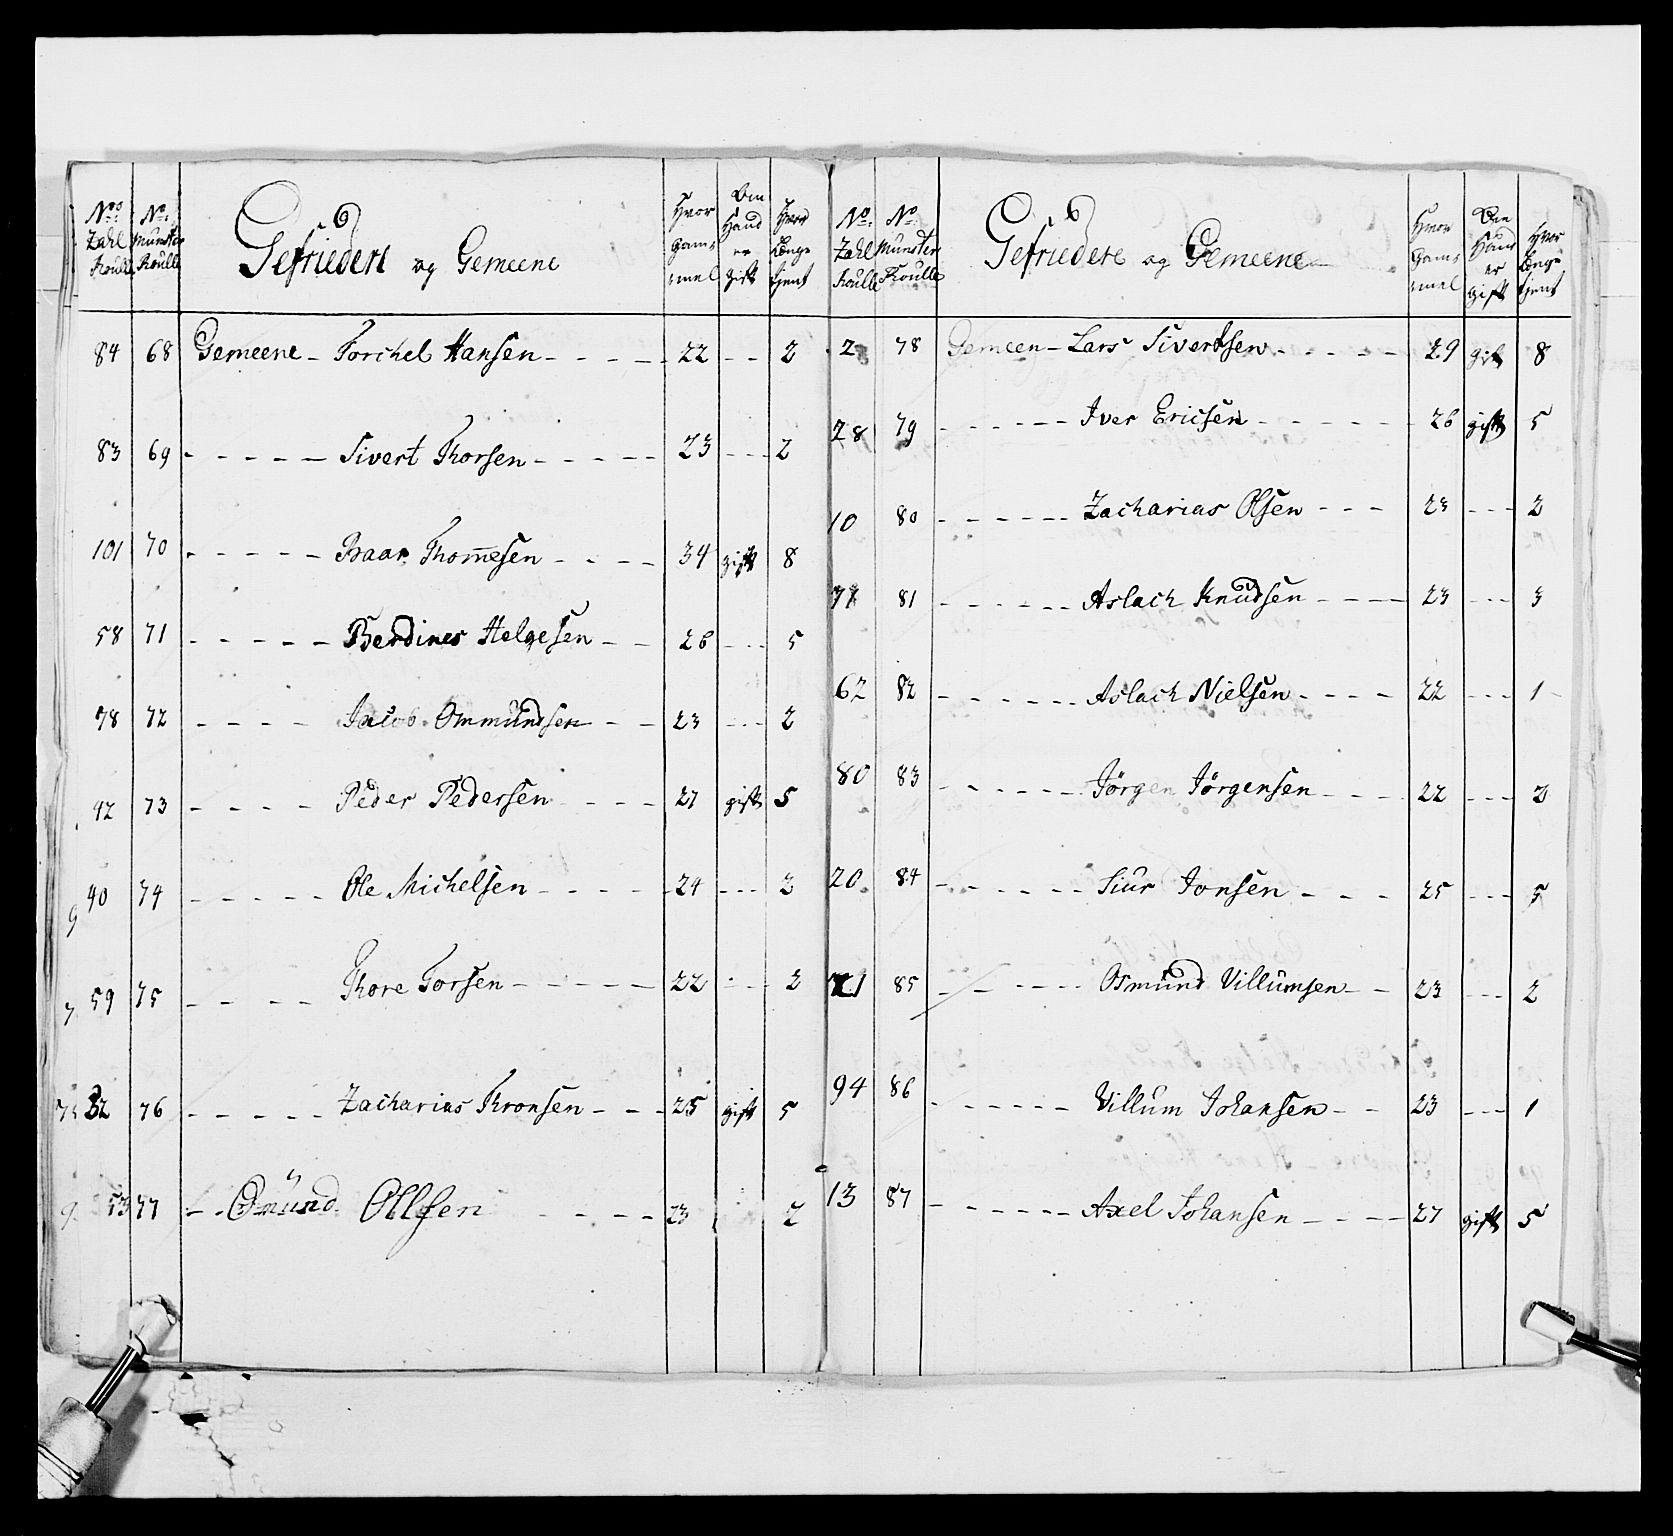 No: Zahl Roulle | No: Munster Roulle | Gefriedere og Gemeene | Hvor Gam: mel | Om Hand er Gift | Hvor Lenge tjent
84 68 Gemeene - Torchel Hansen - 22 - - 2
83 69 - - - - - Sivert Thorsen - 23 - - - 2
101 70 - - - - - Baar Thomesen - 34 gift 8
58 71 - - - - - Berdines Helgesen - - 26 - - - 5
78 72 - - - - Jacob Ommundsen - - 23 - - - 2
42 73 - - - - Peder Pedersen - - - 27 gift 5
40 74 - - - - - Ole Michelsen - - - - 24 - - - 2
59 75 - - - - Thore Torsen - - - - - 22 - - - 2
32 76 - - - - - Zacharias Thronsen - - - 25 gift 5
53 77 - - Omund Ollsen - - - - 23 2
No: Zahl Roulle | No: Munster Roulle | Gefriedere og Gemeene | Hvor Gam: mel | Om Hand er gift | Hvor Lenge tjent
2 78 Gemeen - Lars Sivertsen - - - - - 29 gift 8
28 79 - - - - - - Iver Ericsen - - - - - - 26 gift 5
10 80 - - - - - - Zacharias Olsen - - - 23 - - - 2
77 81 - - - - - - Aslach Knudsen - - - - 23 - - - 3
62 82 - - - - - - Aslach Nielsen - - - - 22 - - - 1
80 83 - - - - - - Jörgen Jörgensen - - - 22 - - - 2
20 84 - - - - - - Siur Jonsen - - - 25 - - - 5
71 85 - - - - - - Osmund Villumsen - - 23 - - - 2
94 86 - - - - - - Villum Johansen - - 23 - - - 1
13 87 - - - - - - Axel Johansen - - - - 27 gift 5